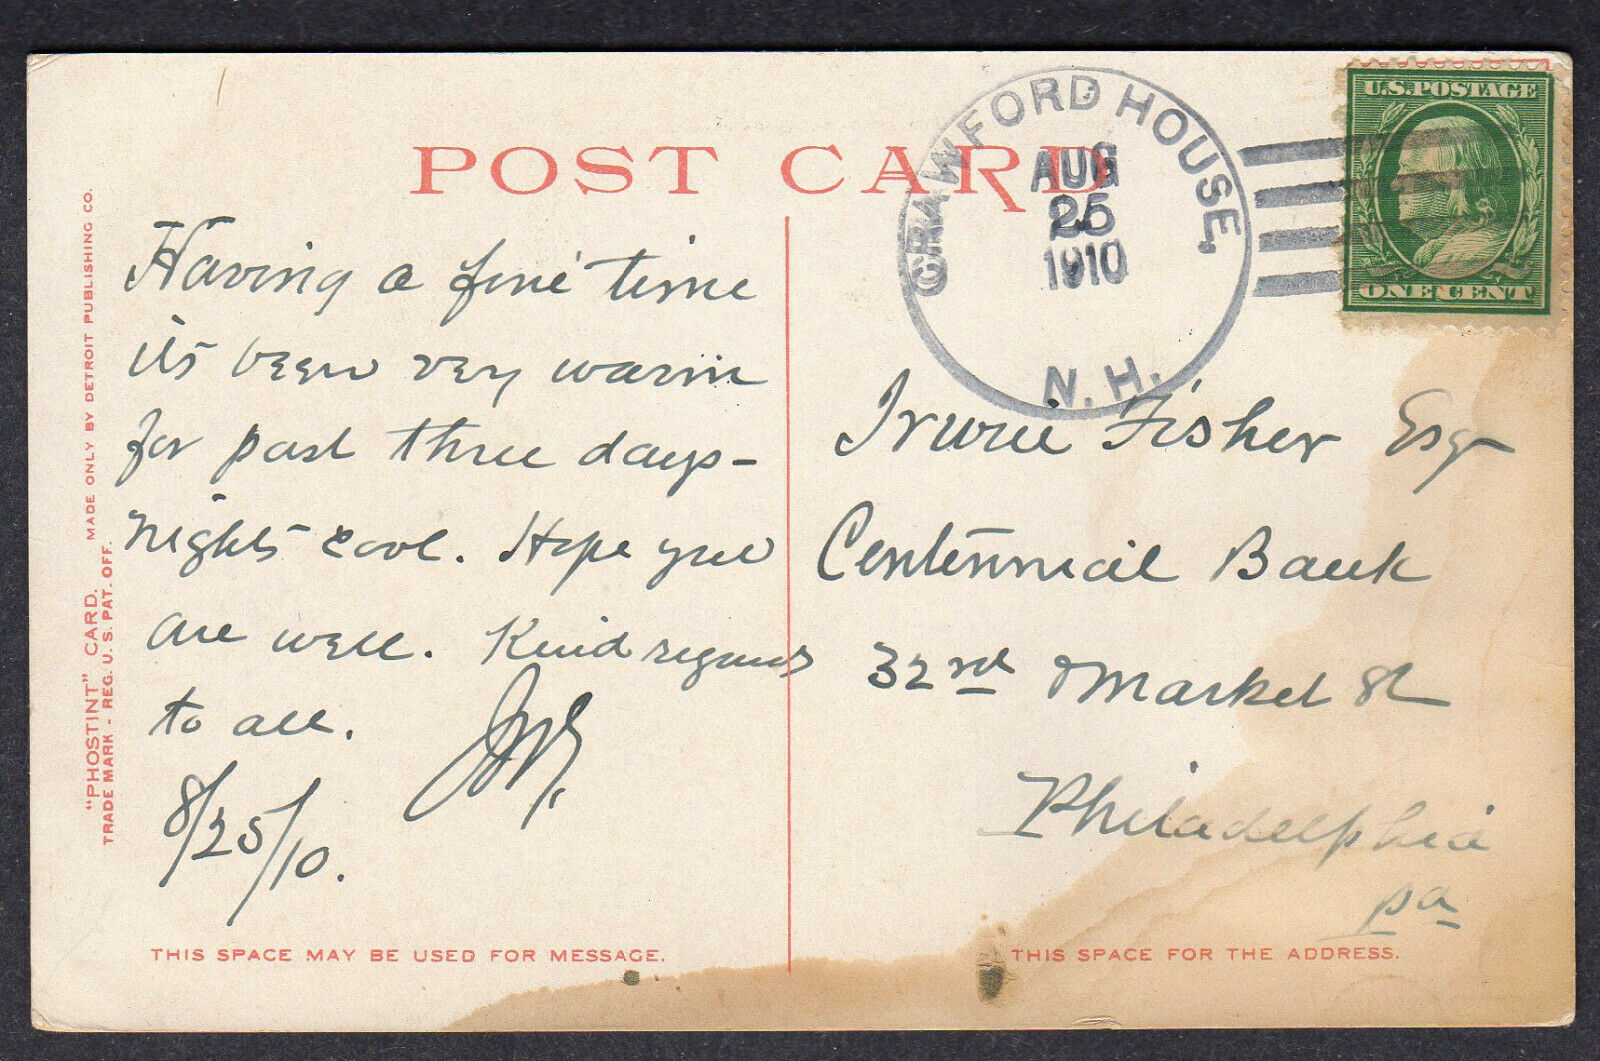 POST CARD
CRAWFORD HOUSE,
AUG
25
1910
N.H.
U.S.POSTAGE
ONE CENT
Having a fine time
its been very warm
for past three days-
nights cool. Hope you
are well. Kind regards
to all.
8/25/10.
Fisher Esq
Centennial Bank
32nd & Market St
Philadelphia
Pa
"PHOSTINT" CARD. MADE ONLY BY DETROIT PUBLISHING CO.
TRADE MARK - REG. U. S. PAT. OFF.
THIS SPACE MAY BE USED FOR MESSAGE.
THIS SPACE FOR THE ADDRESS.